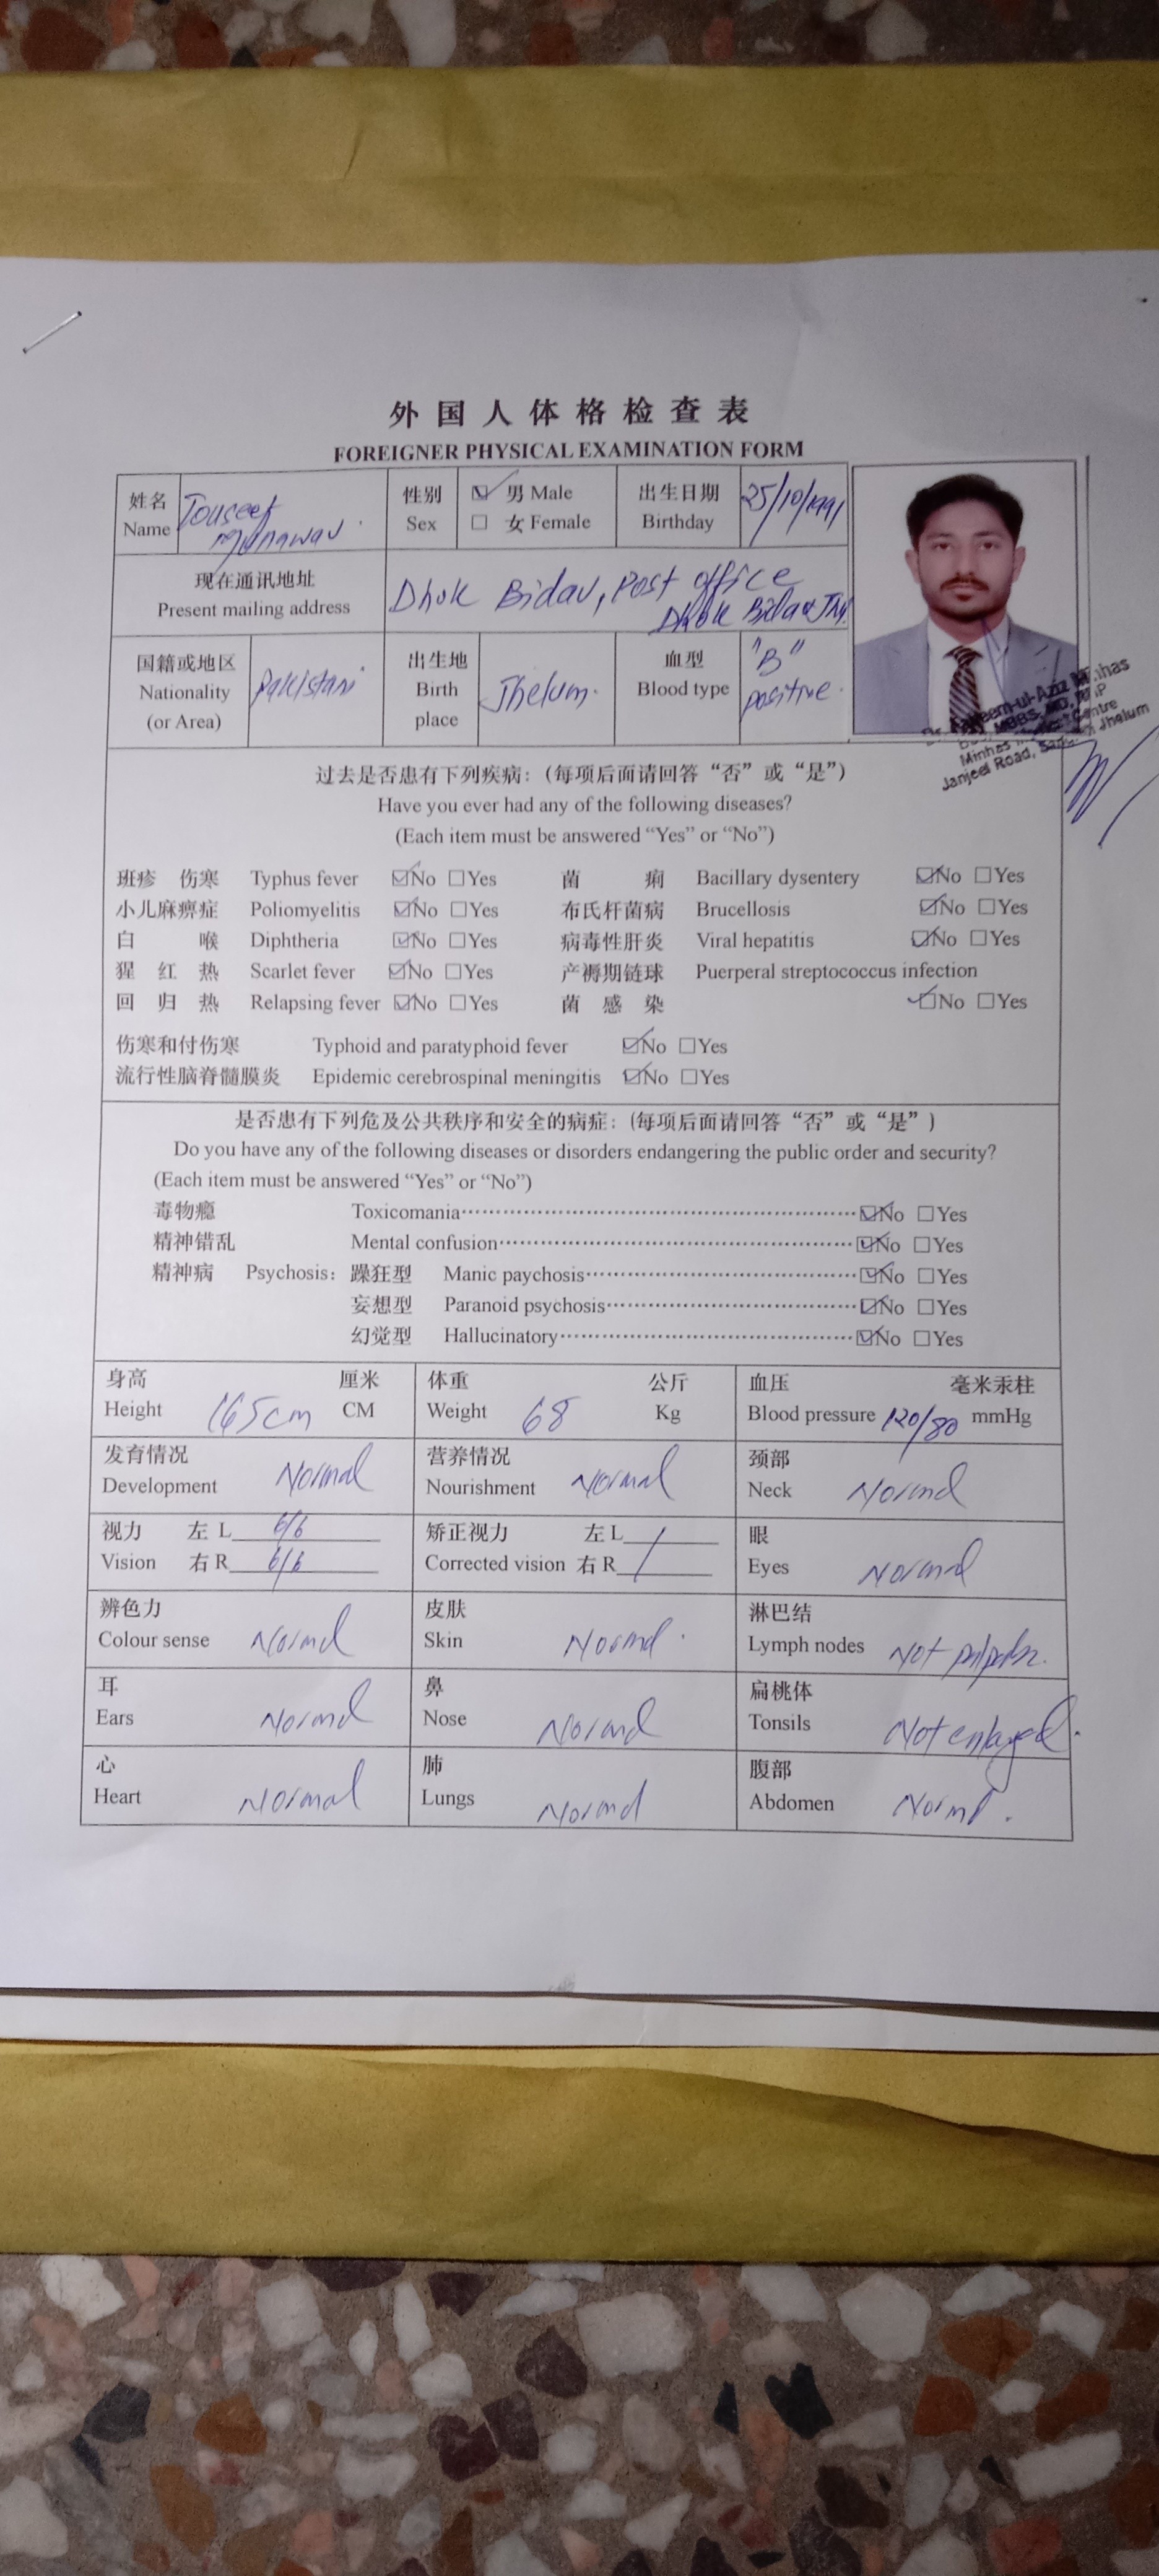 外国人体格检查表
FOREIGNER PHYSICAL EXAMINATION FORM
姓名 Name Touseef Munawar 性别 Sex ☑ 男 Male □ 女 Female 出生日期 Birthday 25/10/1991
现在通讯地址 Present mailing address Dhok Bidar, Post office
Dhok Bidar Jhl
国籍或地区 Nationality (or Area) Pakistani 出生地 Birth place Jhelum. 血型 Blood type "B" positive.
MBBS, MD, RMP
Janjeel Road, Jhelum
过去是否患有下列疾病：（每项后面请回答“否”或“是”）
Have you ever had any of the following diseases?
(Each item must be answered “Yes” or “No”)
班疹 伤寒 Typhus fever ☑No □Yes 菌 痢 Bacillary dysentery ☑No □Yes
小儿麻痹症 Poliomyelitis ☑No □Yes 布氏杆菌病 Brucellosis ☑No □Yes
白 喉 Diphtheria ☑No □Yes 病毒性肝炎 Viral hepatitis ☑No □Yes
猩 红 热 Scarlet fever ☑No □Yes 产褥期链球 Puerperal streptococcus infection
回 归 热 Relapsing fever ☑No □Yes 菌 感 染 ☑No □Yes
伤寒和付伤寒 Typhoid and paratyphoid fever ☑No □Yes
流行性脑脊髓膜炎 Epidemic cerebrospinal meningitis ☑No □Yes
是否患有下列危及公共秩序和安全的病症：（每项后面请回答“否”或“是”）
Do you have any of the following diseases or disorders endangering the public order and security?
(Each item must be answered “Yes” or “No”)
毒物瘾 Toxicomania ☑No □Yes
精神错乱 Mental confusion ☑No □Yes
精神病 Psychosis: 躁狂型 Manic paychosis ☑No □Yes
妄想型 Paranoid psychosis ☑No □Yes
幻觉型 Hallucinatory ☑No □Yes
身高 厘米 体重 公斤 血压 毫米汞柱
Height 165cm CM Weight 68 Kg Blood pressure 120/80 mmHg
发育情况 营养情况 颈部
Development Normal Nourishment Normal Neck Normal
视力 左 L 6/6 矫正视力 左 L / 眼
Vision 右 R 6/6 Corrected vision 右 R / Eyes Normal
辨色力 皮肤 淋巴结
Colour sense Normal Skin Normal. Lymph nodes Not palpable.
耳 鼻 扁桃体
Ears Normal Nose Normal Tonsils Not enlarged.
心 肺 腹部
Heart Normal Lungs Normal Abdomen Normal.